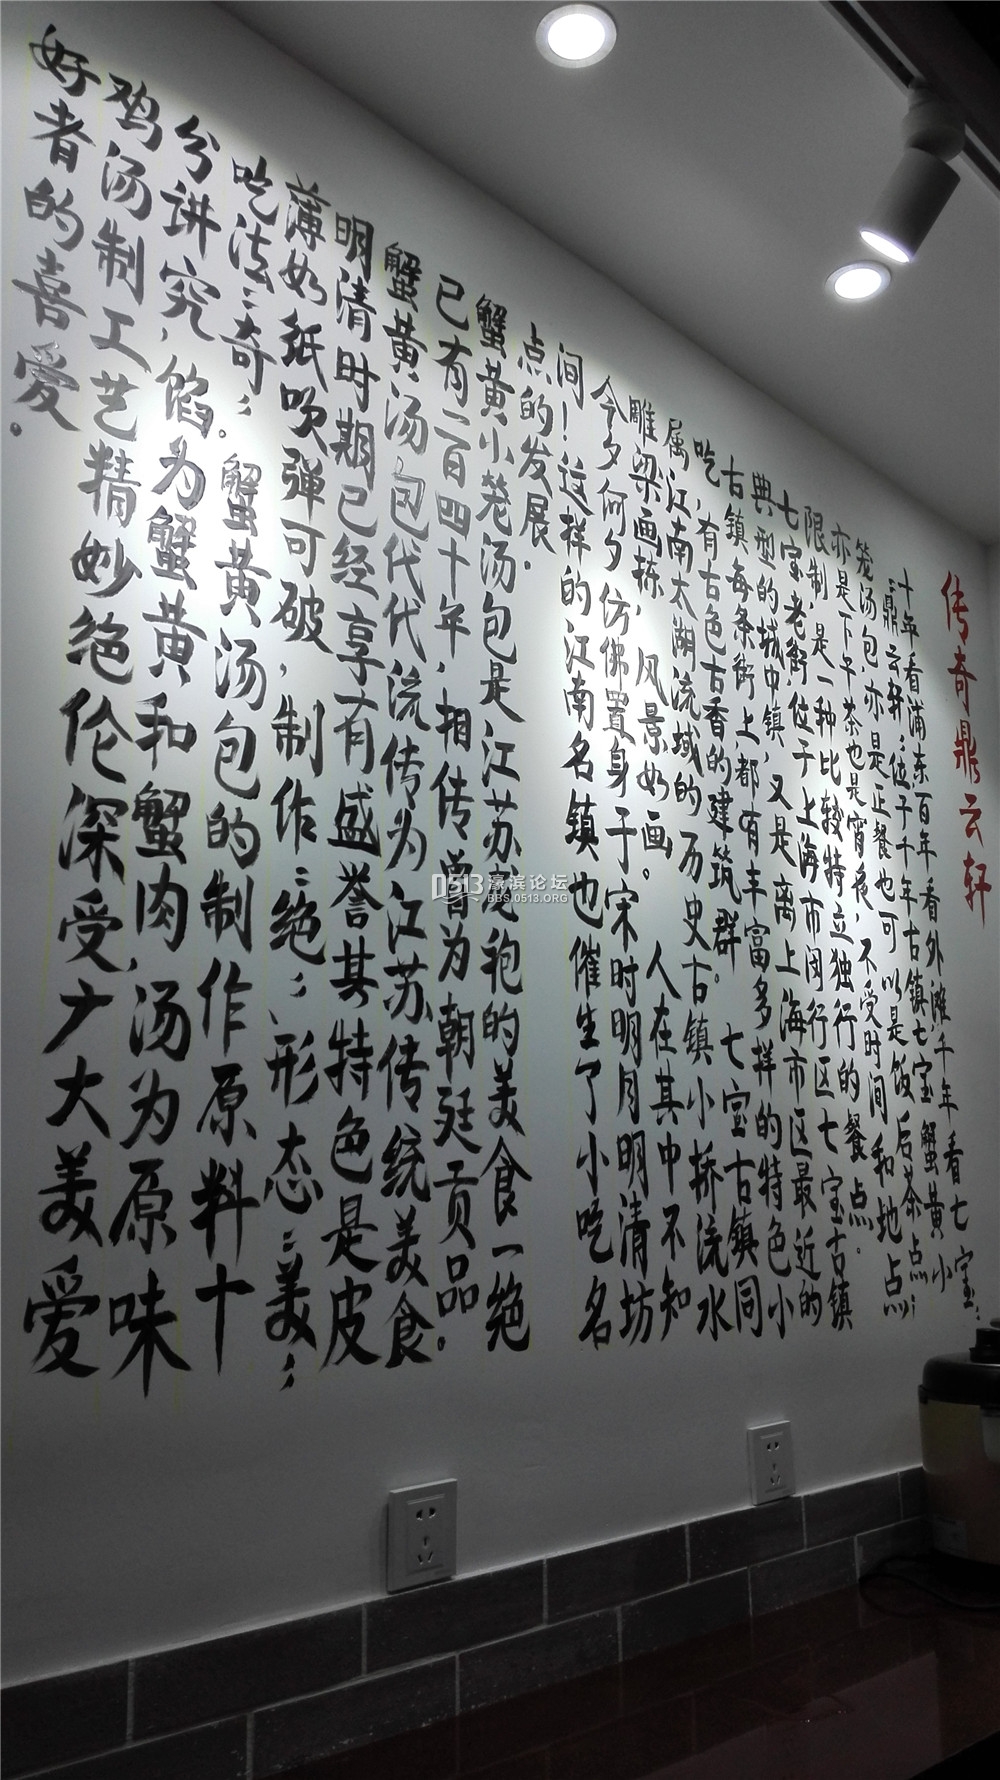 传奇鼎云轩
十年看浦东百年看外滩千年看七宝；
鼎云轩；位于千年古镇七宝蟹黄小
笼汤包，亦是正餐也可以是饭后茶点；
亦是下午茶也是宵夜，不受时间和地点
限制，是一种比较特立独行的餐点。
七宝老街，位于上海市闵行区七宝古镇
典型的城中镇，又是离上海市区最近的
古镇每条街上，都有丰富多样的特色小
吃，有古色古香的建筑群。七宝古镇同
属江南太湖流域的历史古镇小桥流水
雕梁画栋，风景如画。人在其中不知
今夕何夕仿佛置身于宋时明月明清坊
间！这样的江南名镇也催生了小吃名
点的发展。
蟹黄小笼汤包是江苏宠袍的美食一绝
已有二百四十年，相传曾为朝廷贡品。
蟹黄汤包代代流传为江苏传统美食
明清时期已经享有盛誉其特色是皮
薄如纸吹弹可破，制作；绝；形态；美；
吃法；奇；。蟹黄汤包的制作原料十
分讲究，馅为蟹黄和蟹肉，汤为原味
鸡汤制工艺精妙绝伦深受广大美爱
好者的喜爱。
0513濠滨论坛
BBS.0513.ORG